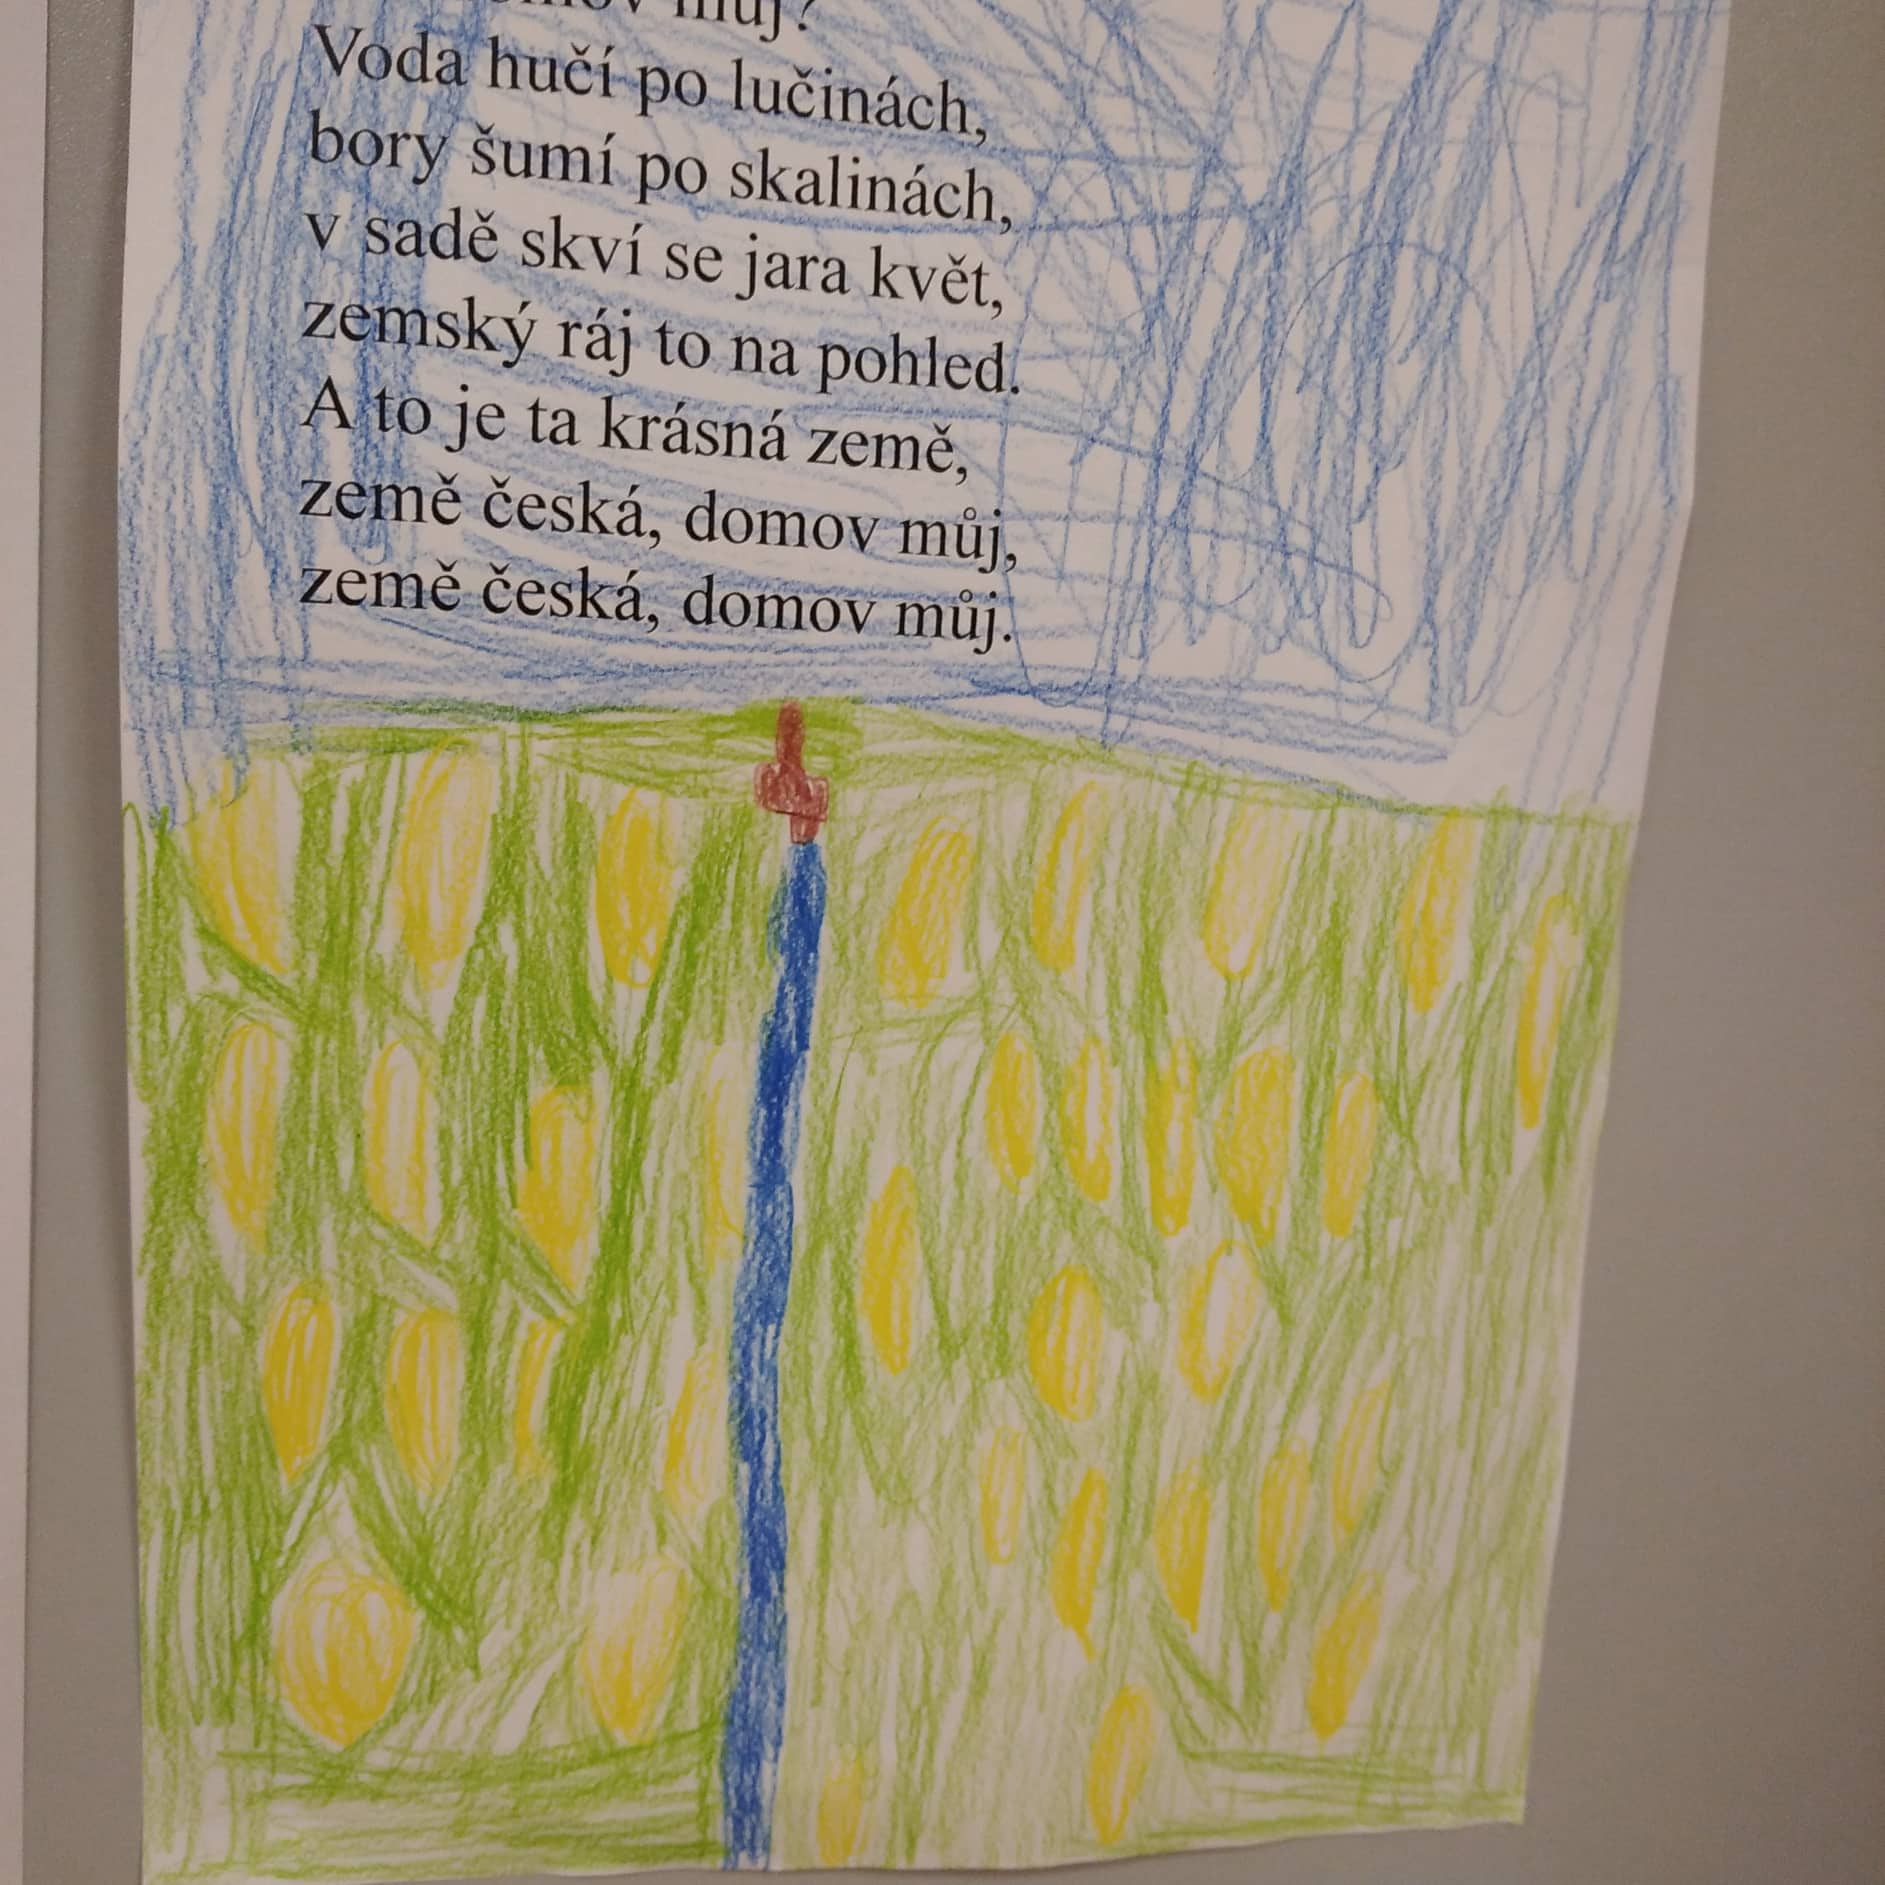 můj?
Voda hučí po lučinách,
bory šumí po skalinách,
v sadě skví se jara květ,
zemský ráj to na pohled.
A to je ta krásná země,
země česká, domov můj,
země česká, domov můj.